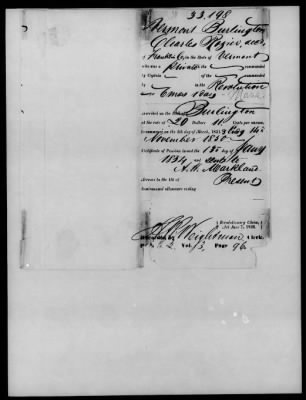 33.198
Vermont Burlington
Charles Rozier, decd.
Franklin Co. in the State of Vermont
who was a Private in the commanded
by Captain of the commanded
by in the Revolution
Inscribed on the Roll of Burlington
at the rate of 20 Dollars Cents per annum,
to commence on the 4th day of March, 1831.
November 1832
Certificate of Pension issued the 15th day of Jany
1834 and
A. W. Markland
Present
Arrears to the 4th of
Semi-annual allowance ending
Revolutionary Claim,
Act June 7, 1832.
Recorded by Weightman Clerk,
Vol. 3, Page 96.